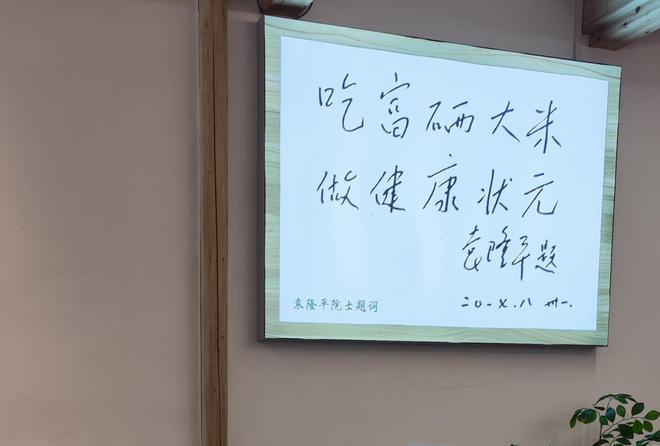 吃富硒大米
做健康状元
袁隆平题
袁隆平院士题词